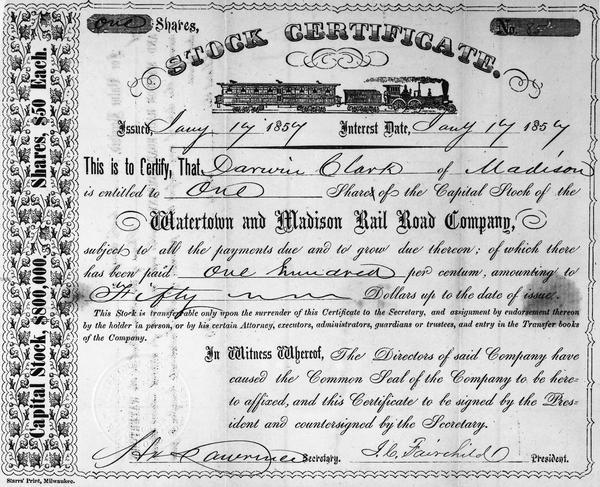 One Shares,
No.
STOCK CERTIFICATE.
Issued, Jany 17 1857 Interest Date, Jany 17 1857
This is to Certify, That Darwin Clark of Madison
is entitled to One Shares of the Capital Stock of the
Watertown and Madison Rail Road Company,
subject to all the payments due and to grow due thereon; of which there
has been paid One hundred per centum, amounting to
Fifty Dollars up to the date of issue.
This Stock is transferable only upon the surrender of this Certificate to the Secretary, and assignment by endorsement thereon
by the holder in person, or by his certain Attorney, executors, administrators, guardians or trustees, and entry in the Transfer books
of the Company.
In Witness Whereof, The Directors of said Company have
caused the Common Seal of the Company to be here-
to affixed, and this Certificate to be signed by the Pres-
ident and countersigned by the Secretary.
Lawrence Secretary. J. C. Fairchild President.
Starrs' Print, Milwaukee.
Capital Stock, $800,000, Shares, $50 Each.